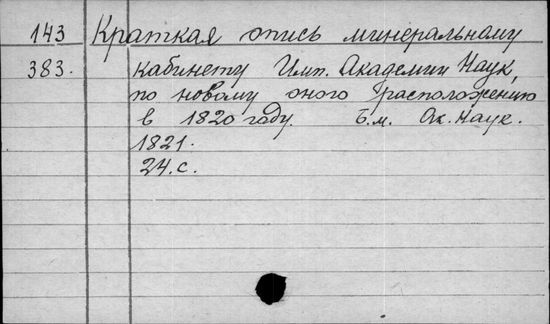 143 Краткая опись минеральному
383. кабинету Имп. Академии Наук,
по новому оного расположению
в 1820 году. Б.м. Ак. Наук.
1821.
24.с.